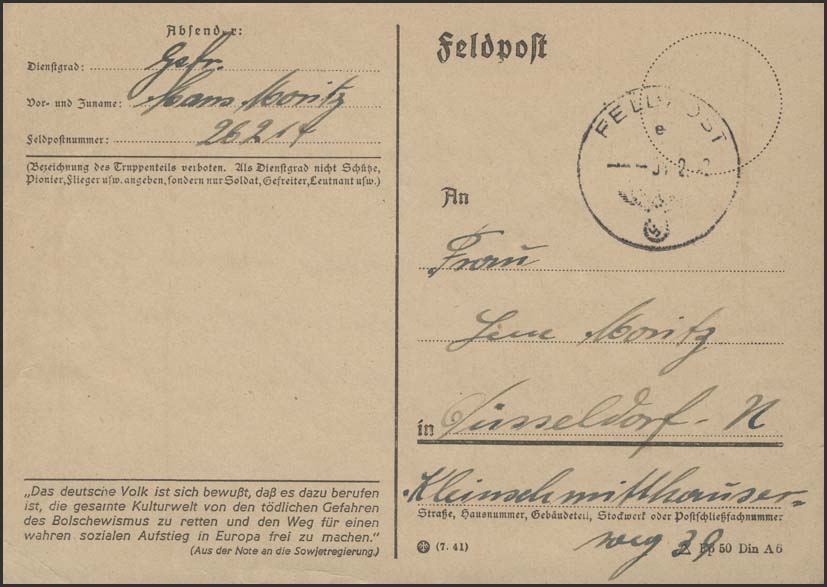 Absender:
Dienstgrad: Gefr.
Vor- und Zuname: Hans Moritz
Feldpostnummer: 26214
(Bezeichnung des Truppenteils verboten. Als Dienstgrad nicht Schütze,
Pionier, Flieger usw. angeben, sondern nur Soldat, Gefreiter, Leutnant usw.)
„Das deutsche Volk ist sich bewußt, daß es dazu berufen
ist, die gesamte Kulturwelt von den tödlichen Gefahren
des Bolschewismus zu retten und den Weg für einen
wahren sozialen Aufstieg in Europa frei zu machen.“
(Aus der Note an die Sowjetregierung.)
Feldpost
FELDPOST
e
An
Frau
Moritz
in Düsseldorf - N
Kleinschmitthauser-
Straße, Hausnummer, Gebäudeteil, Stockwerk oder Postschließfachnummer
weg 39
(7. 41)
Fp 50 Din A 6